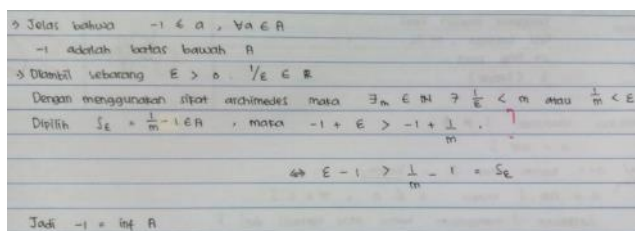 → Jelas bahwa -1 ≤ a, ∀a ∈ A
-1 adalah batas bawah A
→ Diambil sebarang ε > 0. 1/ε ∈ R
Dengan menggunakan sifat archimedes maka ∃m ∈ N ∋ 1/ε < m atau 1/m < ε
Dipilih Sε = 1/m - 1 ∈ A, maka -1 + ε > -1 + 1/m.
⇔ ε - 1 > 1/m - 1 = Sε
Jadi -1 = inf A